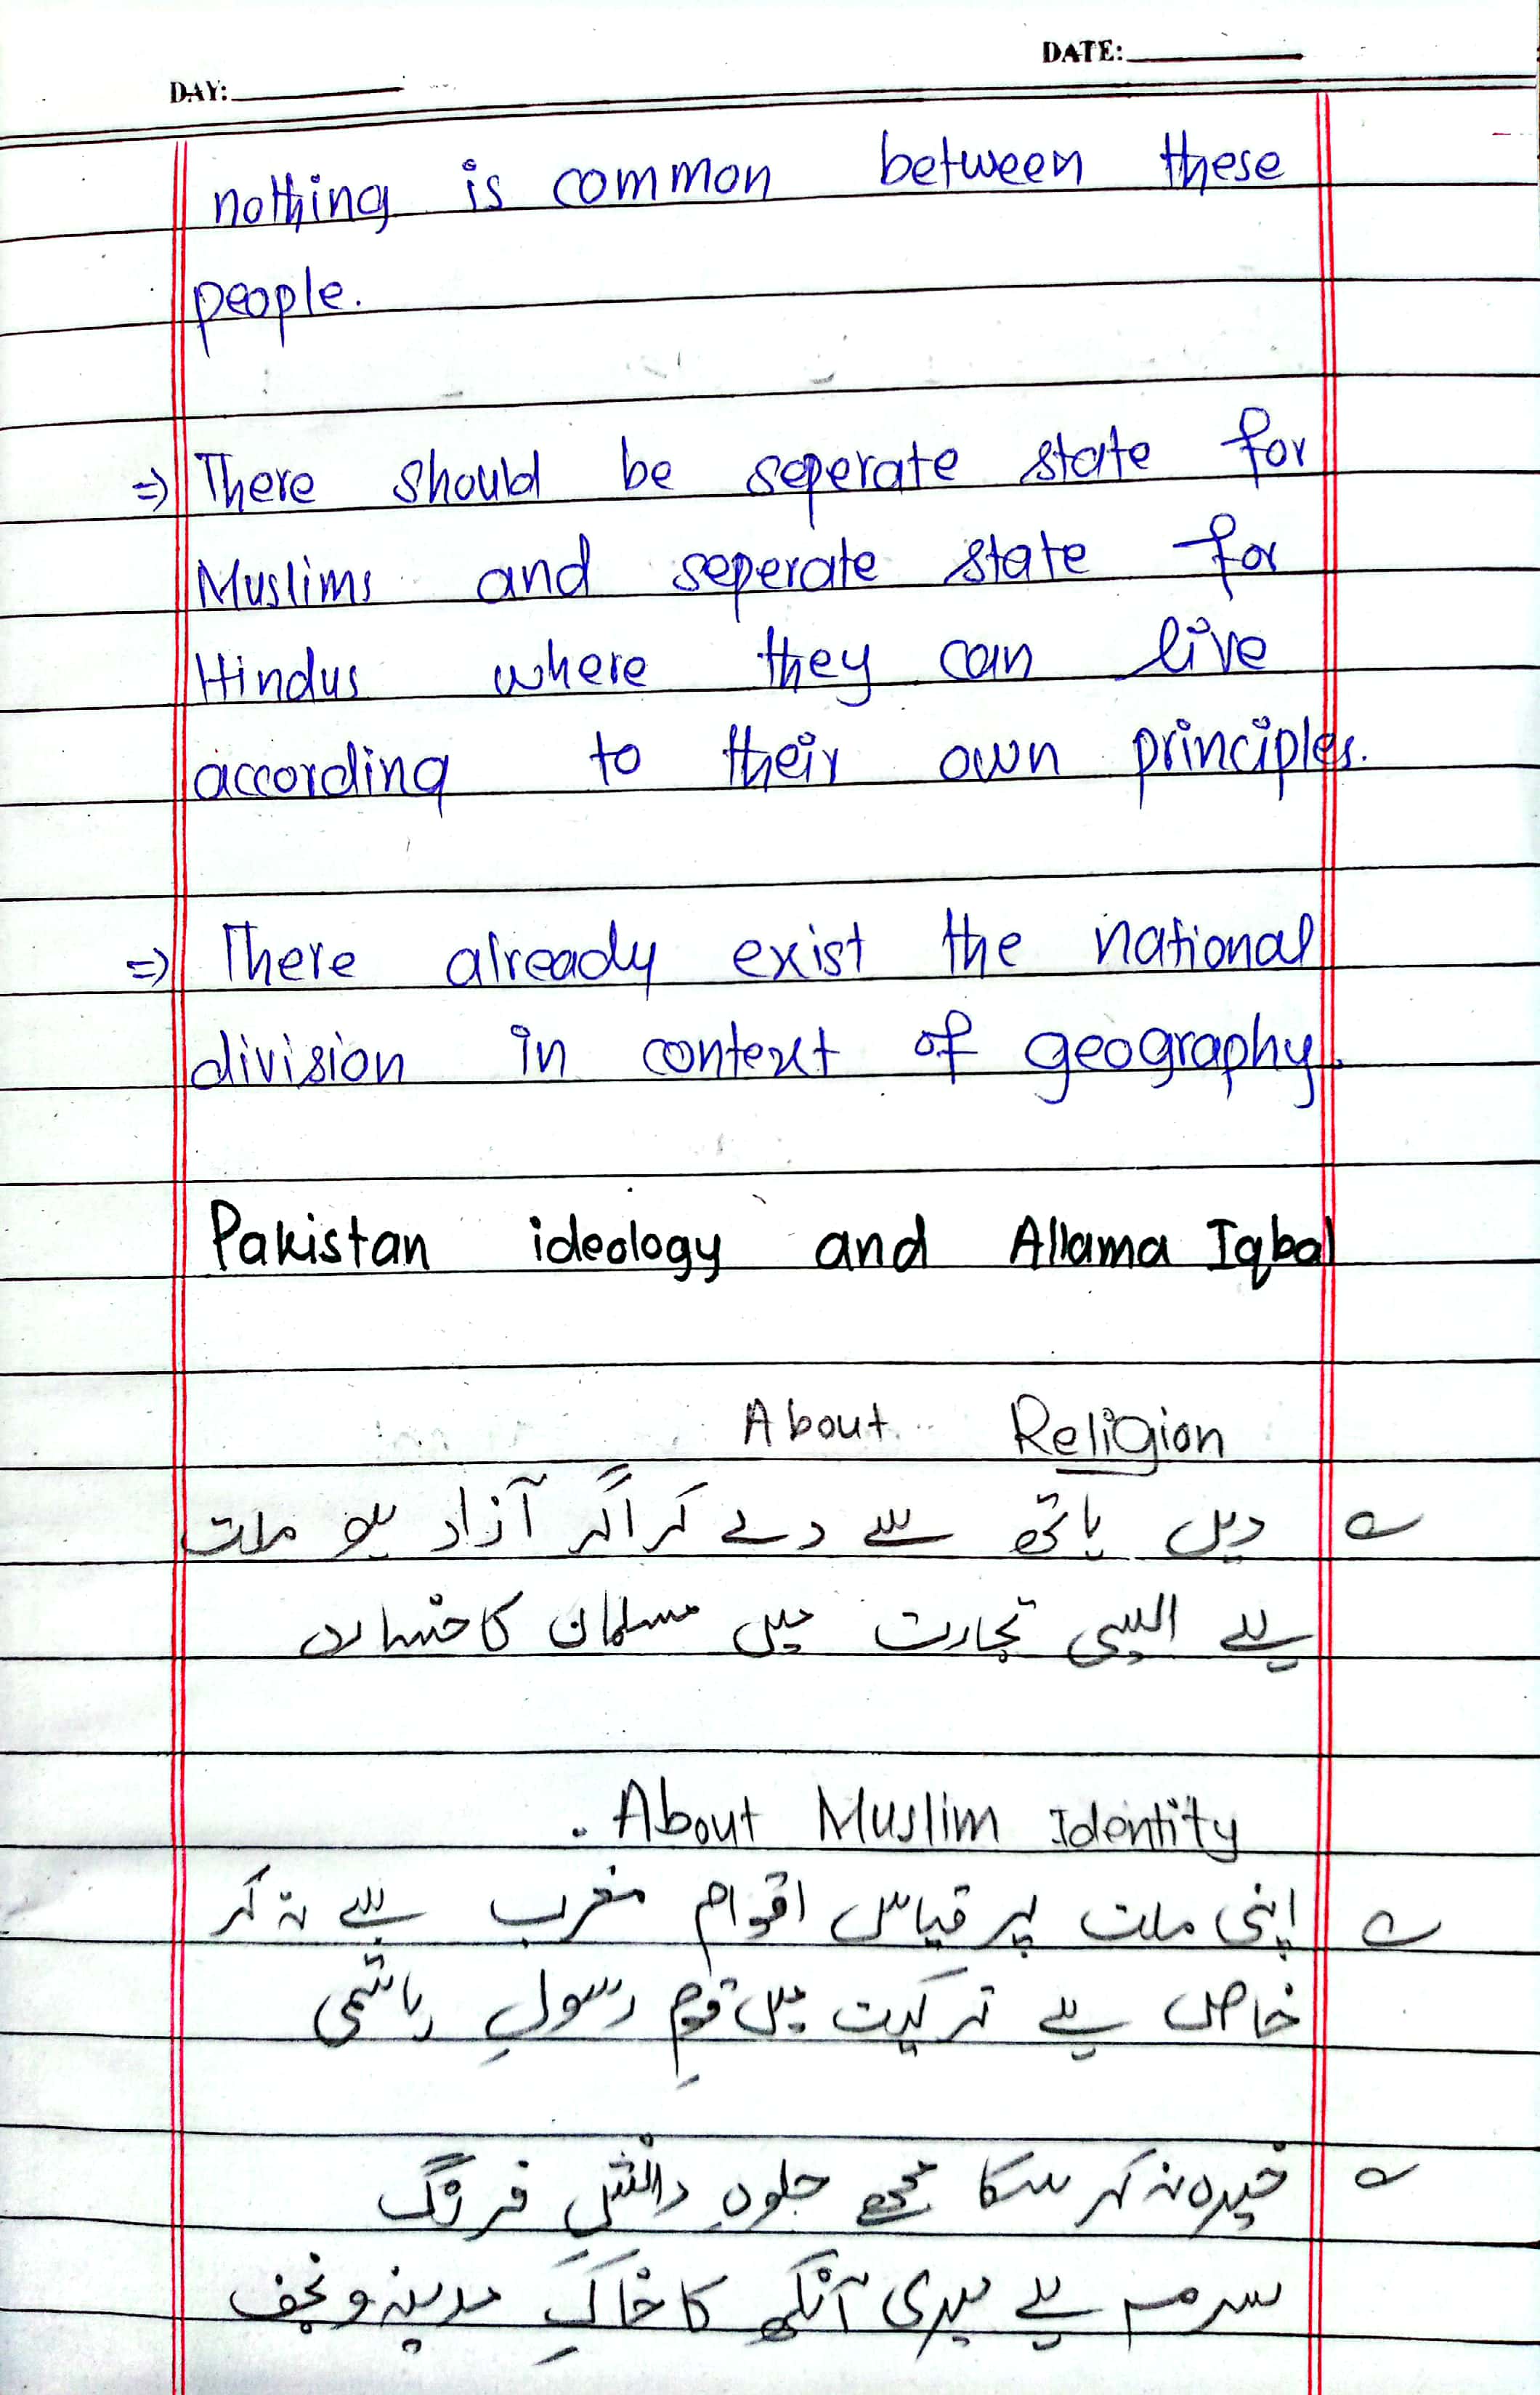 DATE:
DAY:
nothing is common between these
people.
=> There should be seperate state for
Muslims and seperate state for
Hindus where they can live
according to their own principles.
=> There already exist the national
division in context of geography.
Pakistan ideology and Allama Iqbal
About Religion
دیں ہاتھ سے دے کر اگر آزاد ہو ملت
ہے ایسی تجارت میں مسلمان کا خسارہ
About Muslim Identity
اپنی ملت پر قیاس اقوام مغرب سے نہ کر
خاص ہے ترکیب میں قومِ رسولِ ہاشمی
خیرہ نہ کر سکا مجھے جلوہِ دانشِ فرنگ
سرمہ ہے میری آنکھ کا خاکِ مدینہ و نجف